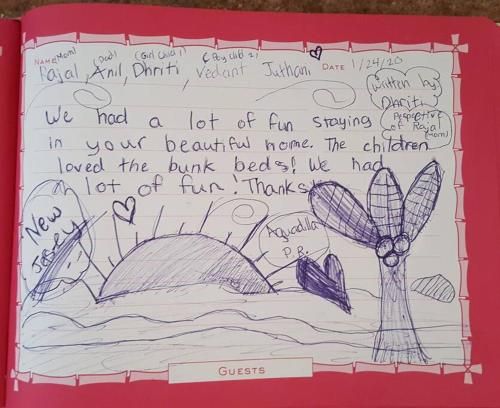 (Mom) (Dad) (Girl Child 1) (Boy child 2)
NAME Rajal, Anil, Dhriti, Vedant Juthani DATE 1/24/20
Written by: Dhriti
Perspective of Rajal (Mom)
We had a lot of fun staying
in your beautiful home. The children
loved the bunk beds! We had
a lot of fun! Thanks!
New Jersey
Aguadilla P.R.
GUESTS